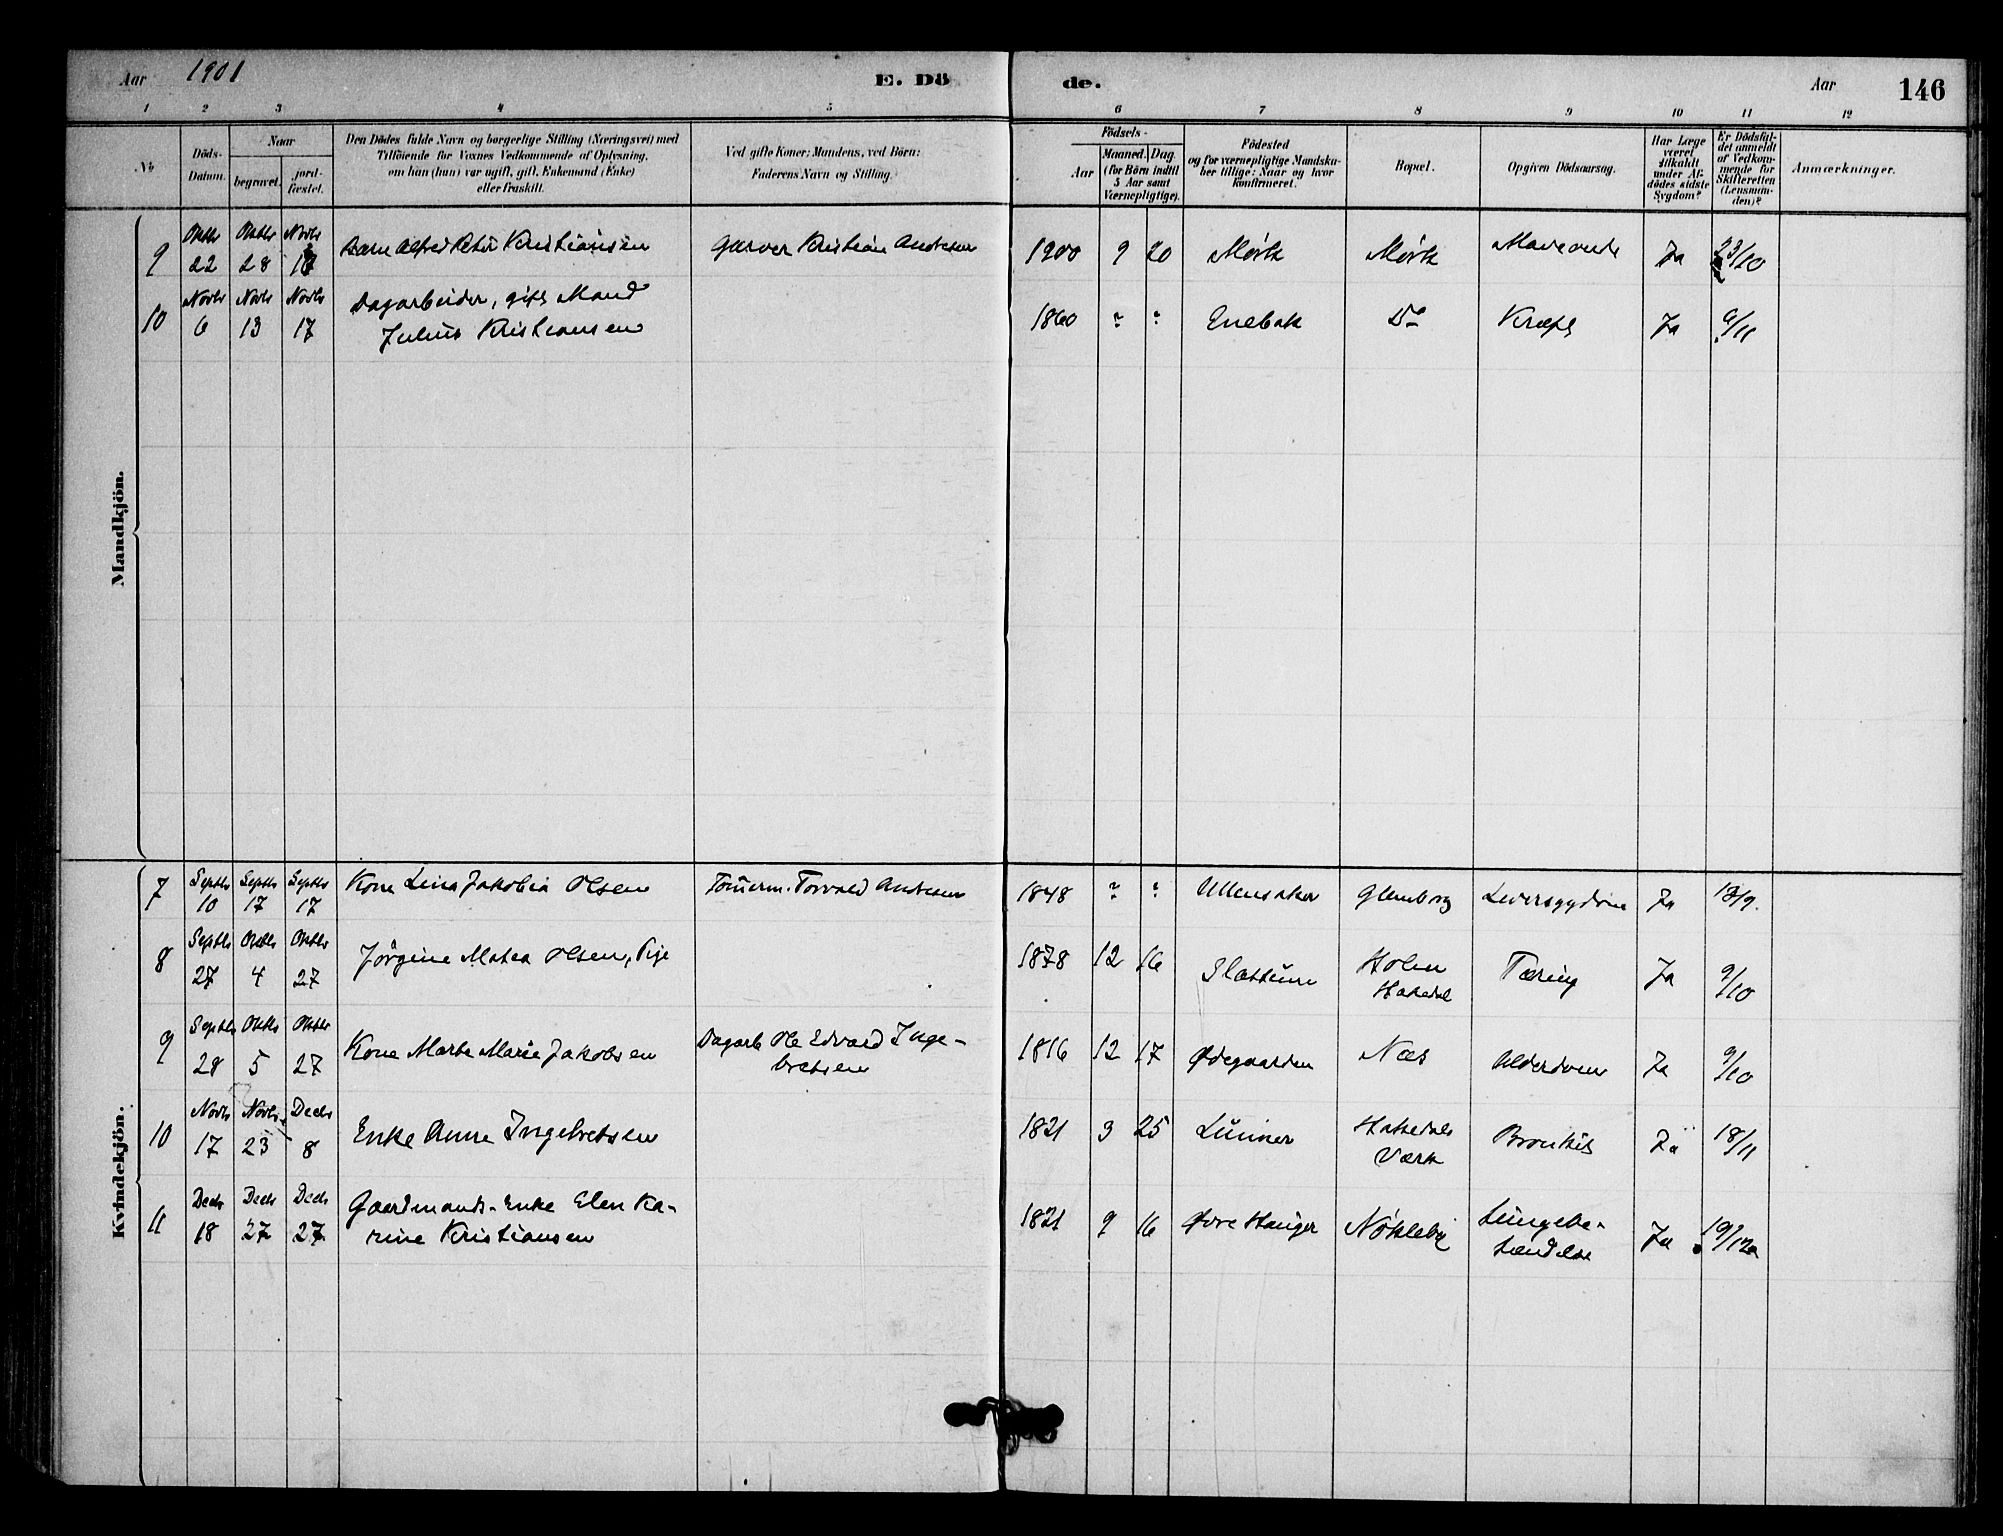 Aar 1901 E. Dö de. Aar 146
1 2 3 4 5 6 7 8 9 10 11 12
No.
Döds-
Datum.
Naar
begravet.
jord-
fæstet.
Den Dödes fulde Navn og borgerlige Stilling (Næringsvei) med
Tilföiende for Voxnes Vedkommende af Oplysning,
om han (hun) var ugift, gift, Enkemand (Enke)
eller fraskilt.
Ved gifte Koner: Mandens, ved Börn:
Faderens Navn og Stilling.
Födsels-
Aar
Maaned. Dag.
(for Börn indtil
5 Aar samt
Værnepligtige).
Födested
og for værnepligtige Mandska-
ber tillige: Naar og hvor
konfirmeret.
Bopæl.
Opgiven Dödsaarsag.
Har Læge
været
tilkaldt
under Af-
dödes sidste
Sygdom?
Er Dödsfal-
det anmeldt
af Vedkom-
mende for
Skifteretten
(Lensman-
den)?
Anmærkninger.
Mandkjön.
9 Oktbr 22 Oktbr 28 Novbr Barn Alfred Peter Kristiansen Garver Kristian Andresen 1900 9 20 Mörk Mörk Maveonde Ja 23/10
10 Novbr 6 Novbr 13 Novbr 17 Dagarbeider, gift Mand
Julius Kristiansen 1860 ? ? Enebak Do Kræft Ja 9/11
Kvindekjön.
7 Septbr 10 Septbr 17 Septbr 17 Kone Lina Jakobia Olsen Tömerm. Torvald Andresen 1848 ? ? Ullensaker Glemborg Leversygdom Ja 13/9.
8 Septbr 27 Oktbr 4 Oktbr 27 Jörgine Matea Olsen, Pige 1878 12 16 Slattum Holen
Hakedal Tæring Ja 9/10
9 Septbr 28 Oktbr 5 Oktbr 27 Kone Marte Marie Jakobsen Dagarb Ole Edvard Inge-
bretsen 1816 12 17 Ødegaarden Næs Alderdom Ja 9/10
10 Novbr 17 Novbr 23 Decbr 8 Enke Anne Ingebretsen 1821 3 25 Lunner Hakedals
Værk Bronkit Ja 18/11
11 Decbr 18 Decbr 27 Decbr 27 Gaardmands-Enke Elen Ka-
rine Kristiansen 1821 9 16 Øvre Hauger Nökleby Lungebe-
tændelse Ja 19/12